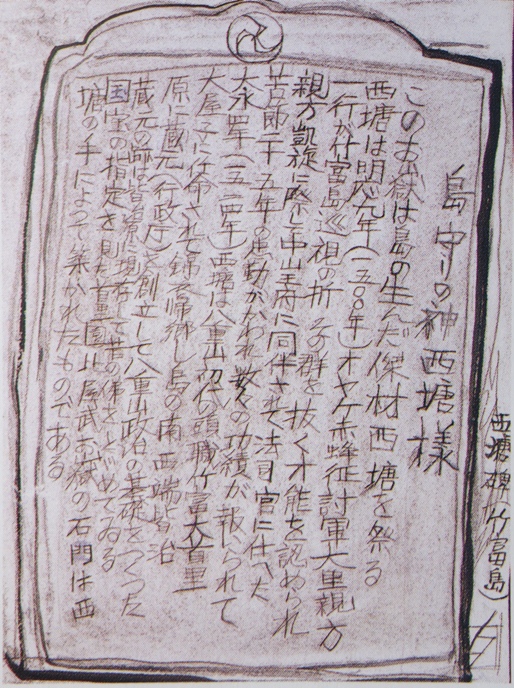 島守りの神西塘様
このお嶽は島の生んだ傑材西塘を祭る
西塘は明応九年(一五〇〇年)オヤケ赤蜂征討軍大里親方
一行が竹富島巡視の折 その群を抜く才能を認められ
親方凱旋に際し中山王府に同伴されて法司官に仕へた
苦節二十五年の忠勤がかわれ 数々の功績が報いられて
大永四年(一五二四年)西塘は八重山初代の頭職竹富大首里
大屋子に任命されて錦衣帰郷し島の南西端皆治
原に蔵元(行政庁)を創立して八重山政治の基礎をつくった
蔵元の跡は皆治原に現存して昔の俤をとどめてゐる
国宝の指定を見た首里園比屋武お嶽の石門は西
塘の手によって築かれたものである
西塘碑(竹富島)